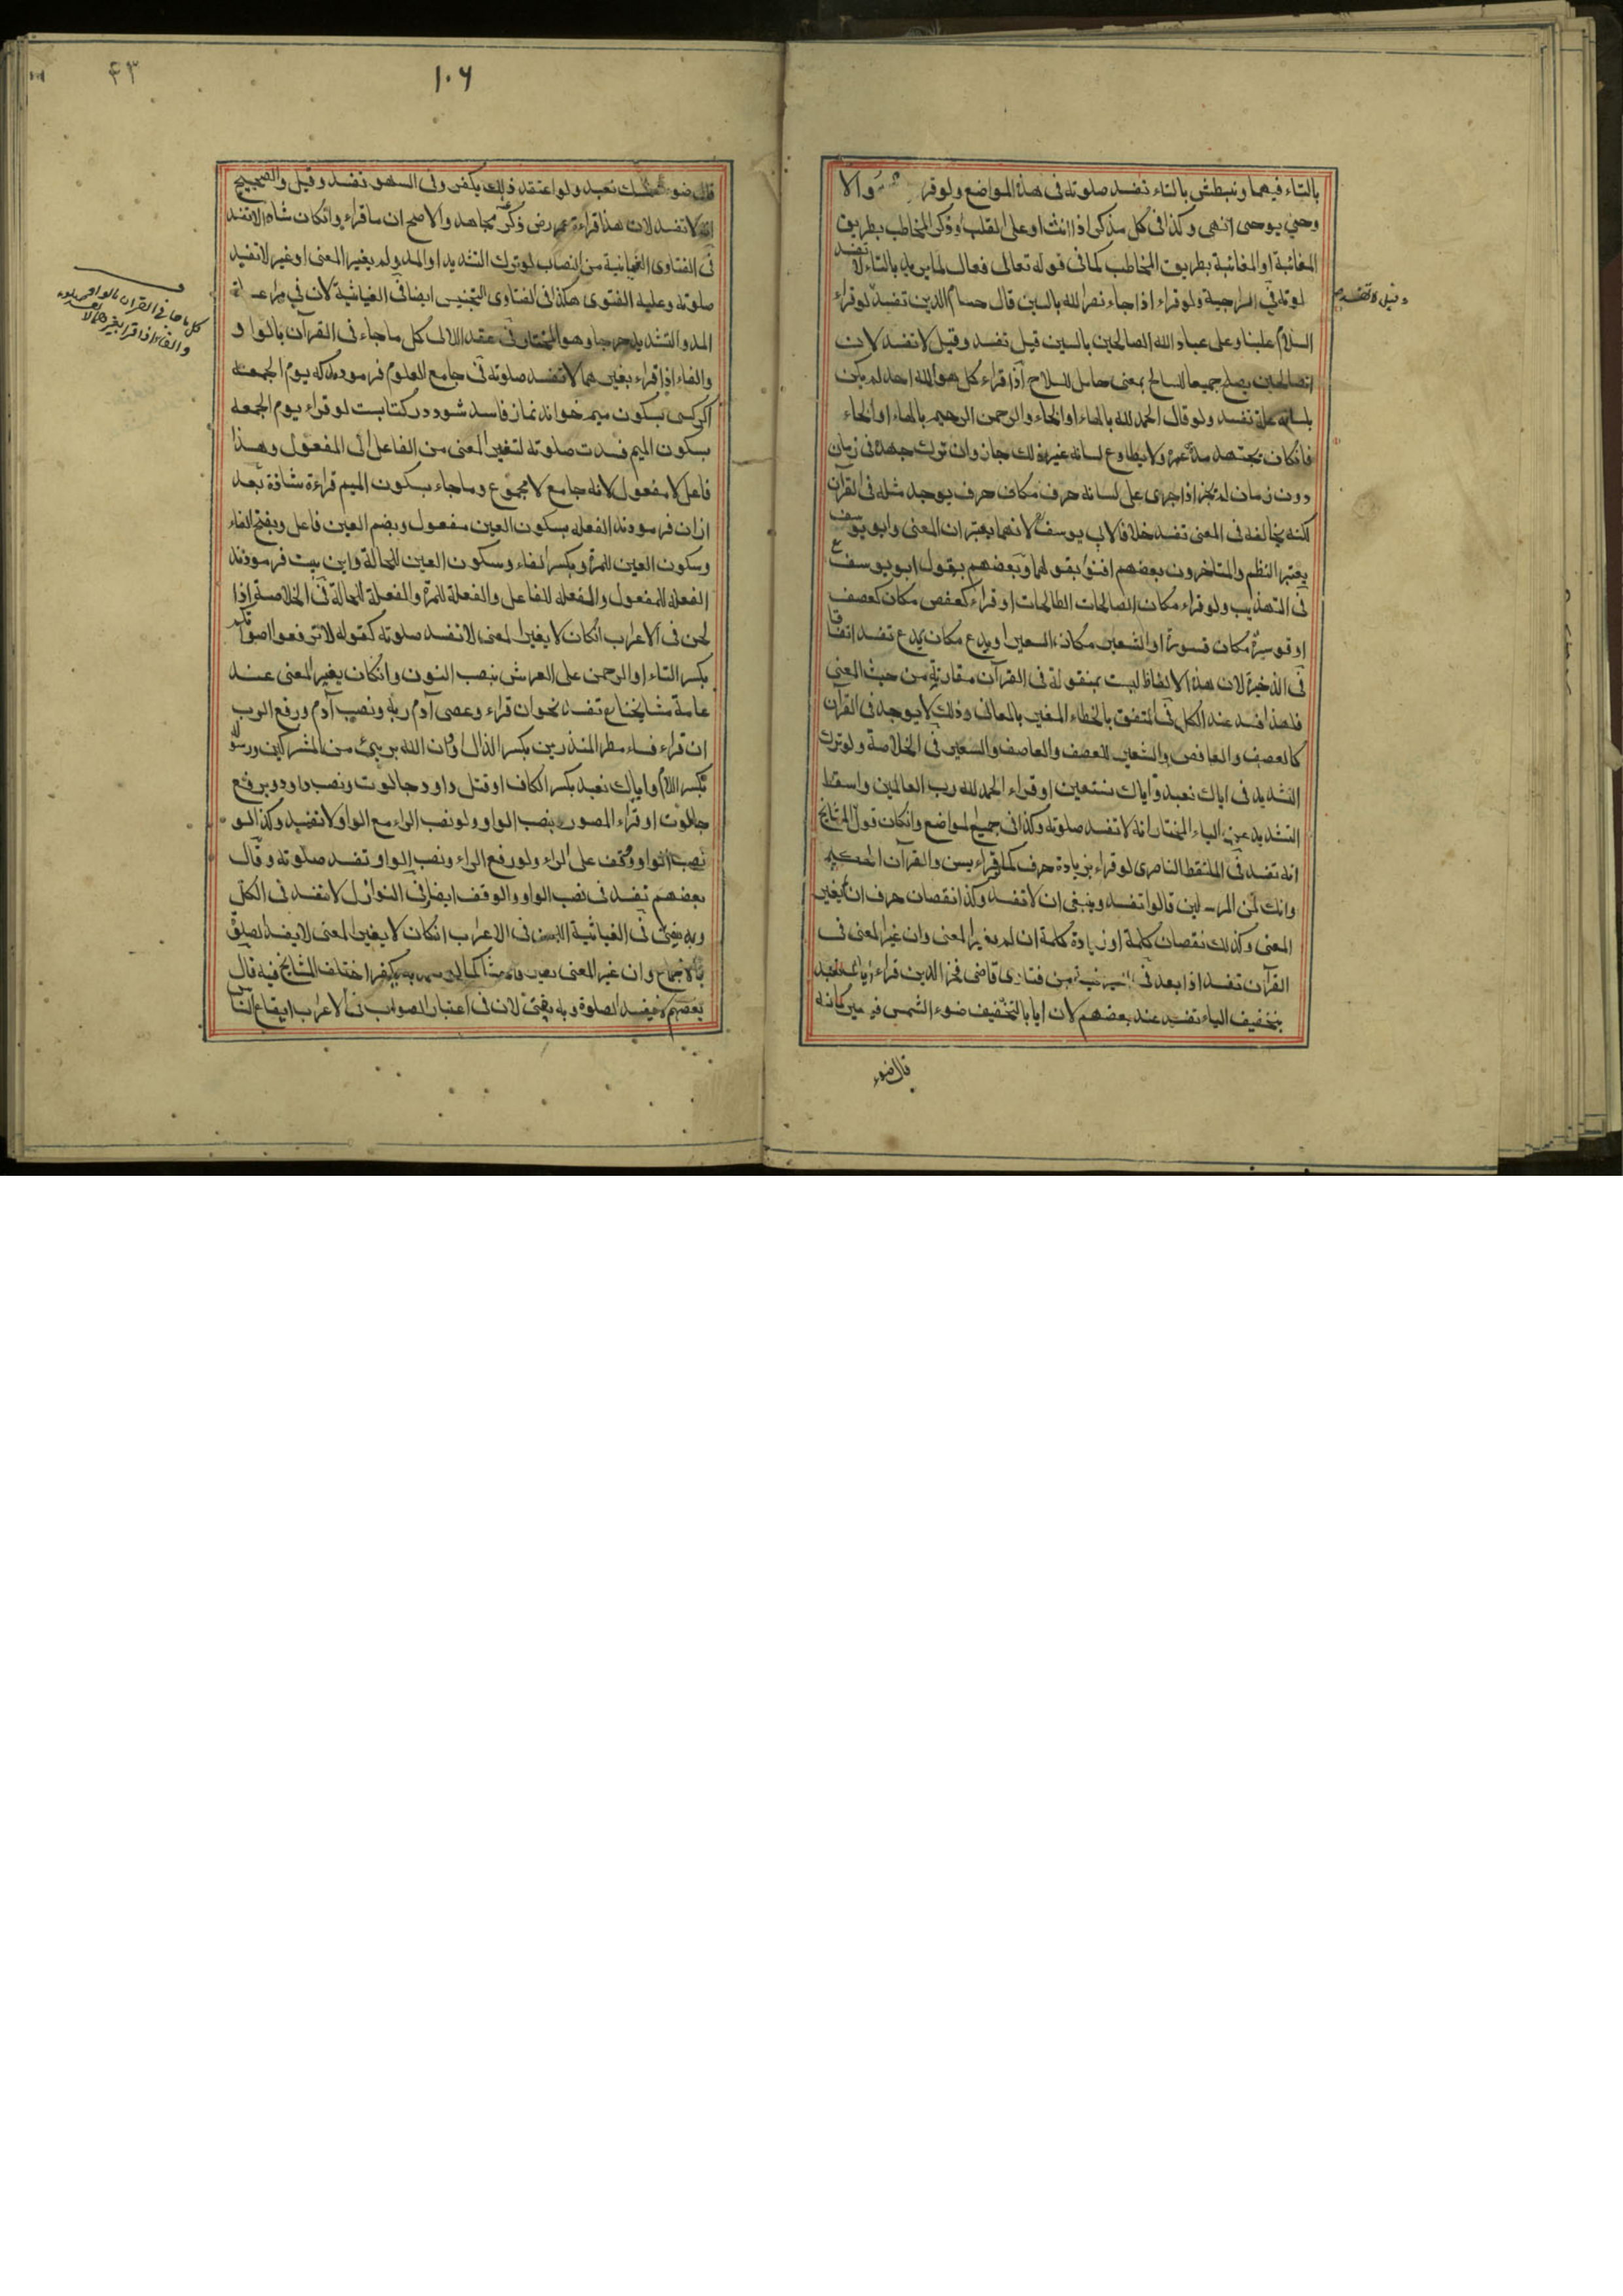 بالتاء فيهما ونبطش بالتاء تفسد صلوته فى هذه المواضع ولو قر والا
وحي يوحى انتهى وكذا فى كل مذكر اذا انث او على القلب او ذكر المخاطب بطريق
المغائبة او المغائبة بطريق المخاطب كما فى قوله تعالى فعال لما يريد بالتاء لا تفسد
صلوته فى السراجية ولو قراء اذا جاء نصر الله بالسين قال حسام الدين تفسد لو قراء
السلام علينا وعلى عباد الله الصالحين بالسين قيل تفسد وقيل لا تفسد لان
الصالحين يصلح جميعا للسالح بمعنى حامل السلاح اذا قراء كل هو الله احد لم يكن
بلسانه علة تفسد ولو قال الحمد لله بالهاء او الخاء والرحمن الرحيم بالهاء او الخاء
فانكان يجتهد مدة عمره ولا يطاوع لسانه غير ذلك جاز وان ترك جهده فى زمان
دون زمان لم يجز اذا جرى على لسانه حرف مكان حرف يوجد مثله فى القرآن
لكنه يخالفه فى المعنى تفسد خلافا لابي يوسف لانهما يعتبران المعنى وابو يوسف
يعتبر النظم والمتاخرون بعضهم افتوا بقولهما وبعضهم بقول ابو يوسف
فى التهذيب ولو قراء مكان الصالحات الطالحات او قراء كعفص مكان كعصف
او قوسرة مكان قسورة او الشعير مكان السعير او يدع مكان يدع تفسد اتفاقا
فى الذخيرة لان هذه الالفاظ ليست بمنقولة فى القرآن مقاربة من حيث المعنى
فلهذا فسد عند الكل فى المتفق بالخطاء المغير بالمعانى وذلك لا يوجد فى القرآن
كالعصف والعافص والشعير للعصف والعاصف والسعير فى الخلاصة ولو ترك
التشديد فى اياك نعبد واياك نستعين او قراء الحمد لله رب العالمين واسقط
التشديد عن الباء المختار انه لا تفسد صلوته وكذا فى جميع المواضع وانكان قول المشايخ
انه تفسد فى الملتقط الناصرى لو قراء بزيادة حرف كما قراء يس والقرآن الحكيم
وانك لمن المرسلين قالوا تفسد وينبغى ان لا تفسد وكذا نقصان حرف ان لم يغير
المعنى وكذلك نقصان كلمة او زيادة كلمة ان لم يغير المعنى وان غير المعنى فى
القرآن تفسد اذا بعد فى من فتاوى قاضى فخر الدين قراء اياك نعبد
بتخفيف الياء تفسد عند بعضهم لان ايا بالتخفيف ضوء الشمس فيصير كانه
قال ضوء
وقيل لا تفسد
١٠٦
٤٣
قال ضوء شمسك نعبد ولو اعتقد ذلك يكفر وفى السهو تفسد وقيل والصحيح
انه لا تفسد لان هذا قراءة عمر رض ذكره مجاهد والاصح ان ما قراء وانكان شاذا لا تفسد
فى الفتاوى الغياثية من النصاب لو ترك التشديد او المد ولم يغير المعنى او غير لا تفسد
صلوته وعليه الفتوى هكذا فى الفتاوى التجنيس ايضا فى الغياثية لان فى مراعاة
المد والتشديد حرجا وهو المختار فى عقد اللالى كل ما جاء فى القرآن بالواو
والفاء اذا قراء بغيرهما لا تفسد صلوته فى جامع العلوم فرمودند كه يوم الجمعة
اكر كسى بسكون ميم خواند نماز فاسد شود در كتابت لو قراء يوم الجمعه
بسكون الميم فسدت صلوته لتغير المعنى من الفاعل الى المفعول وهذا
فاعل لا مفعول لانه جامع لا مجموع وما جاء بسكون الميم قراءة شاذة بعد
ازان فرمودند الفعله بسكون العين مفعول وبضم العين فاعل وبفتح الفاء
وسكون العين للمرة وبكسر الفاء وسكون العين للحالة واين بيت فرمودند
الفعله للمفعول والفعله للفاعل والفعلة للمرة والفعلة للحالة فى الخلاصة اذا
لحن فى الاعراب انكان لا يغير المعنى لا تفسد صلوته كقوله لا ترفعوا اصواتكم
بكسر التاء او الرحمن على العرش بنصب النون وانكان يغير المعنى عند
عامة مشايخنا تفسد نحو ان قراء وعصى آدم ربه ونصب آدم ورفع الرب
ان قراء فساء مطر المنذرين بكسر الذال او ان الله برئ من المشركين ورسوله
بكسر اللام واياك نعبد بكسر الكاف او قتل داود جالوت ونصب داود ورفع
جالوت او قراء المصور بنصب الواو ولو نصب الراء مع الواو لا تفسد وكذا لو
نصب الواو ووقف على الراء ولو رفع الراء ونصب الواو تفسد صلوته وقال
بعضهم تفسد فى نصب الواو والوقف ايضا فى النوازل لا تفسد فى الكل
وبه يفتى فى الغياثية اللحن فى الاعراب انكان لا يغير المعنى لا يفسد الصلوة
بالاجماع وان غير المعنى يكفر اختلف المشايخ فيه قال
بعضهم لا يفسد الصلوة وبه يفتى لان فى اعتبار الصواب فى الاعراب ايقاع الناس
كل ما جاء فى القرآن بالواو
والفاء اذا قرا بغيرهما لا